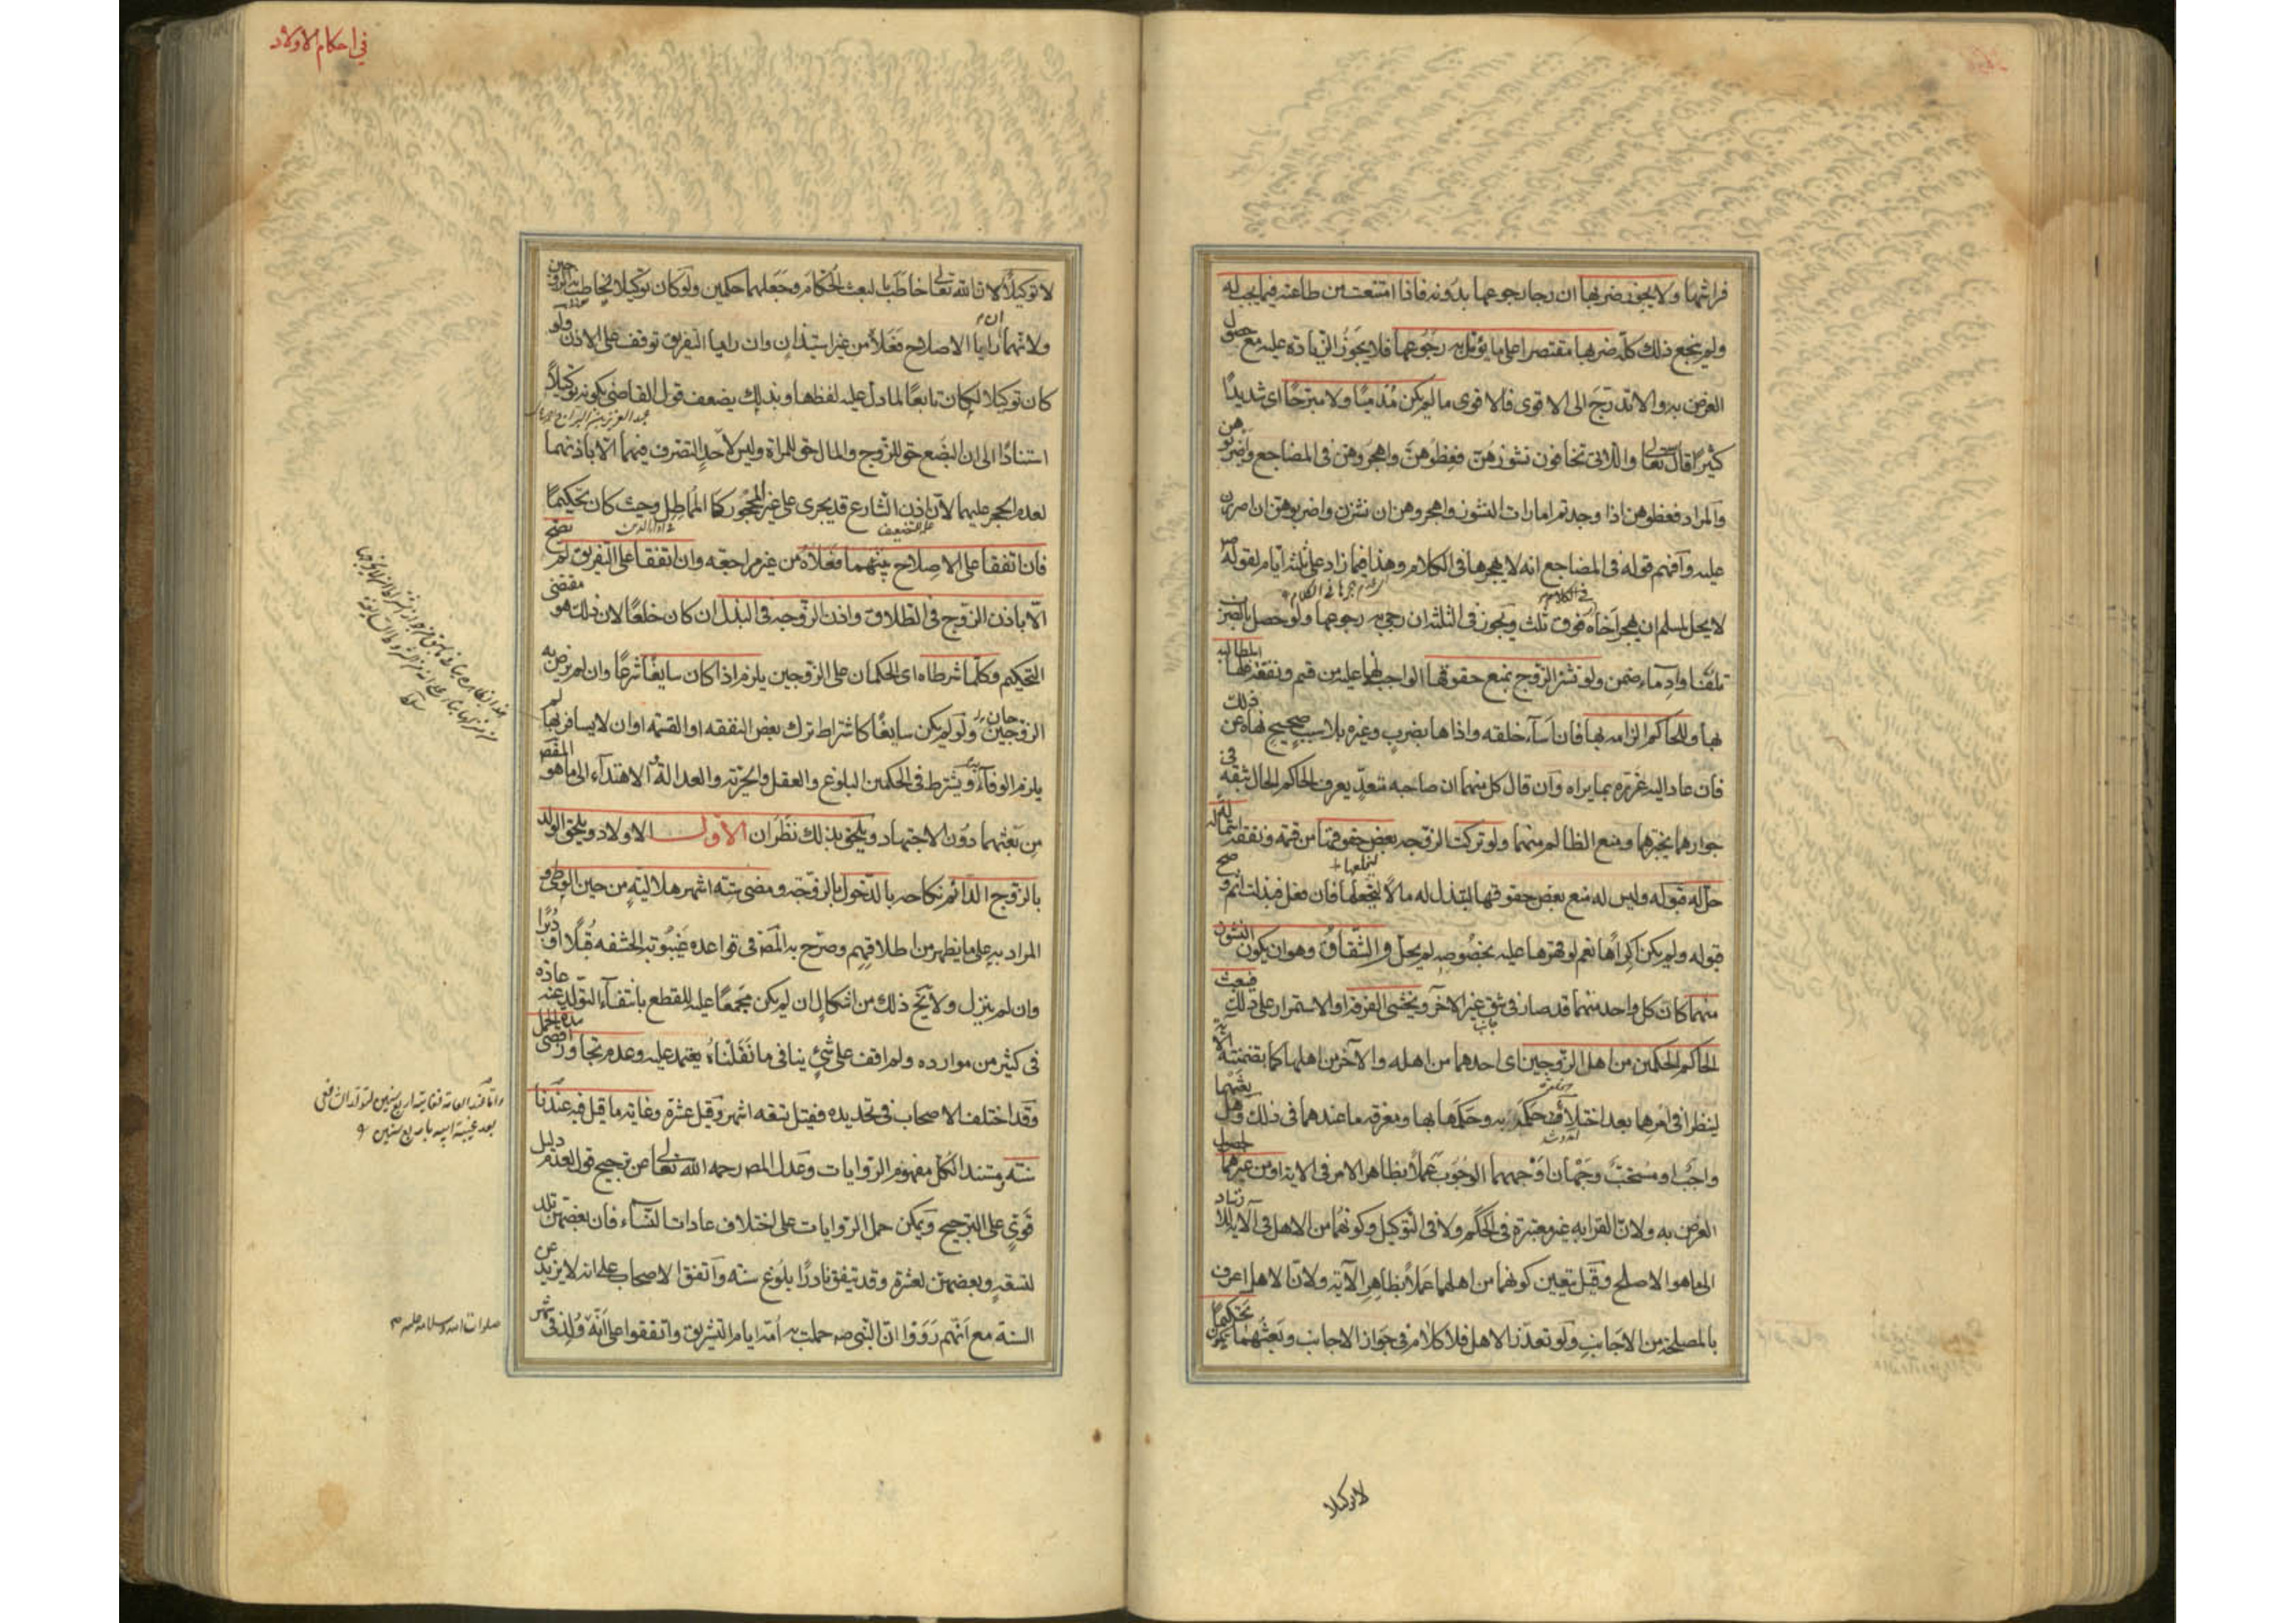 فراشها ولا يجوز ضربها ان رجا رجوعها بدونه فاذا امتنعت من طاعته فيما يجب له
ولم ينجع ذلك كله ضربها مقتصرا على ما يؤمل به رجوعها فلا يجوز الزيادة عليه مع حصول
الغرض به والا تدرج الى الاقوى فالاقوى ما لم يكن مدميا ولا مبرحا اى شديدا
كثيرا قال تعالى واللاتى تخافون نشوزهن فعظوهن واهجروهن فى المضاجع واضربوهن
والمراد فعظوهن اذا وجدتم امارات النشوز واهجروهن ان نشزن واضربوهن ان اصررن
عليه وافهم قوله فى المضاجع انه لا يهجرها فى الكلام وهذا فيما زاد على ثلثه ايام لقوله ص
لا يحل لمسلم ان يهجر اخاه فوق ثلث ويجوز فى الثلثه ان رجى به رجوعها ولو حصل بالضرب
تلف او ادماء ضمن ولو نشز الزوج بمنع حقوقها الواجبه لها عليه من قسم ونفقه فلها المطالبه
بها وللحاكم الزامه بها فان اساء خلقه واذاها بضرب وغيره بلا سبب صحيح نهاه عن ذلك
فان عاد اليه عزره بما يراه وان قال كل منهما ان صاحبه متعد يعرف الحاكم الحال بثقه فى
جوارهما يختبرهما ومنع الظالم منهما ولو تركت الزوجه بعض حقوقها من قسمه ونفقه استماله له
حل له قبوله وليس له منع بعض حقوقها لتبذل له مالا ليخلعها فان فعل فبذلت اثم وصح
قبوله ولم يكن اكراها نعم لو قهرها عليه بخصوصه لم يحل والشقاق وهو ان يكون النشوز
منهما كان كل واحد منهما قد صار فى شق غير الاخر ويخشى الفرقه او الاستمرار على ذلك فيبعث
الحاكم الحكمين من اهل الزوجين اى احدهما من اهله والآخر من اهلها كما تضمنته الآيه
لينظرا فى امرهما بعد اختلاء حكمه به وحكمها بها ومعرفه ما عندهما فى ذلك وهل بعثهما
واجب او مستحب وجهان اوجههما الوجوب عملا بظاهر الامر فى الايه او من غيرهما لحصول
الغرض به ولان القرابه غير معتبرة فى الحكم ولا فى التوكيل وكونهما من الاهل فى الآيه للارشاد
الى ما هو الاصلح وقيل يتعين كونهما من اهلهما عملا بظاهر الآيه ولان الاهل اعرف
بالمصلحه من الاجانب ولو تعذر الاهل فلا كلام فى جواز الاجانب وبعثهما يكون تحكيما
لا توكيلا
فى احكام الاولاد
لا توكيلا لان الله تعالى خاطب بالبعث الحكام وجعلهما حكمين ولو كان توكيلا لخاطب به الزوجين
ولانهما ان رايا الاصلاح فعلاه من غير استيذان وان رايا التفريق توقف على الاذن ولو
كان توكيلا لكان تابعا لما دل عليه لفظهما وبذلك يضعف قول القاضى بكونه توكيلا
استنادا الى ان البضع حق للزوج والمال حق للمراة وليس لاحد التصرف فيهما الا باذنهما
لعدم الحجر عليهما لان اذن الشارع قد يجرى على غير المحجور كالمماطل وحيث كان تحكيما
فان اتفقا على الاصلاح بينهما فعلاه من غير مراجعه وان اتفقا على التفريق لم يصح
الا باذن الزوج فى الطلاق واذن الزوجه فى البذل ان كان خلعا لان ذلك هو مقتضى
التحكيم وكلما شرطاه اى الحكمان على الزوجين يلزم اذا كان سايغا شرعا وان لم يرض به
الزوجين ولو لم يكن سايغا كاشتراط ترك بعض النفقه او القسمه او ان لا يسافر بها لم
يلزم الوفاء به ويشترط فى الحكمين البلوغ والعقل والحريه والعدالة والاهتداء الى ما هو المقصود
من بعثهما دون الاجتهاد ويلحق بذلك نظران الاول الاولاد ويلحق الولد
بالزوج الدائم نكاحه بالدخول بالزوجه ومضى سته اشهر هلاليه من حين الوطى و
المراد به على ما يظهر من اطلاقهم وصرح به المص فى قواعده غيبوبه الحشفه قبلا او دبرا
وان لم ينزل ولا يخ ذلك من اشكال ان لم يكن مجمعا عليه للقطع بانتفاء التولد عنه عادة
فى كثير من موارده ولم اقف على شئ ينافى ما نقلناه يعتمد عليه وعدم تجاوز اقصى مدة الحمل
وقد اختلف الاصحاب فى تحديده فقيل تسعه اشهر وقيل عشرة وغايه ما قيل فيه عندنا
سنه ومستند الكل مفهوم الروايات وعدل المص رحمه الله تعالى عن ترجيح قول لعدم دليل
قوى على الترجيح ويمكن حمل الروايات على اختلاف عادات النساء فان بعضهن تلد
لتسعه وبعضهن لعشره وقد يتفق نادرا بلوغ سنه واتفق الاصحاب على انه لا يزيد عن
السنه مع انهم رووا ان النبى صه حملت به امه ايام التشريق واتفقوا على انه ولد فى شهر
صلوات الله وسلامه عليه